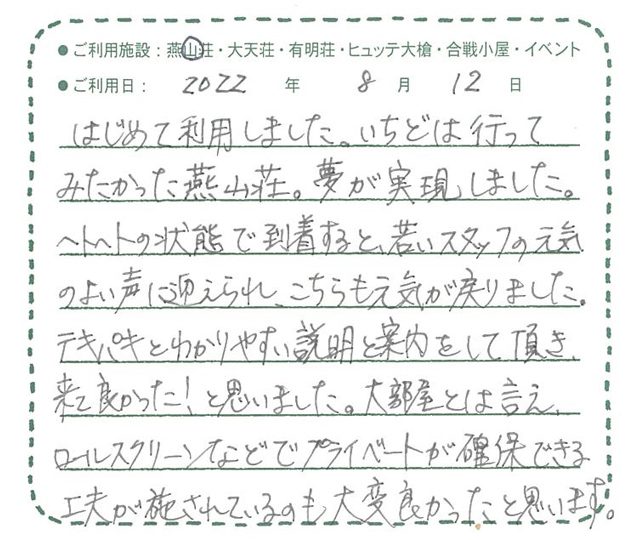 ●ご利用施設：燕山荘・大天荘・有明荘・ヒュッテ大槍・合戦小屋・イベント
●ご利用日： 2022 年 8 月 12 日
はじめて利用しました。いちどは行って
みたかった燕山荘。夢が実現しました。
ヘトヘトの状態で到着すると、若いスタッフの元気
のよい声に迎えられ、こちらも元気が戻りました。
テキパキとわかりやすい説明と案内をして頂き、
来て良かった！と思いました。大部屋とは言え、
ロールスクリーンなどでプライベートが確保できる
工夫が施されているのも大変良かったと思います。